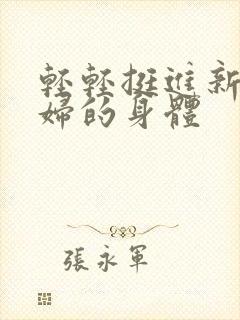 輕輕挺進新
婦的身體
張永軍